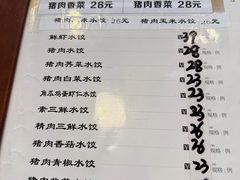 猪肉香菜 28元 猪肉香菜 28元
水饺 26元 猪肉玉米水饺 26元
鲜虾水饺 39
猪肉水饺 28
猪肉芥菜水饺 28
猪肉白菜水饺 23
角瓜鸡蛋虾仁水饺
素三鲜水饺 23
精肉三鲜水饺 26
猪肉香菇水饺 26
猪肉青椒水饺 23